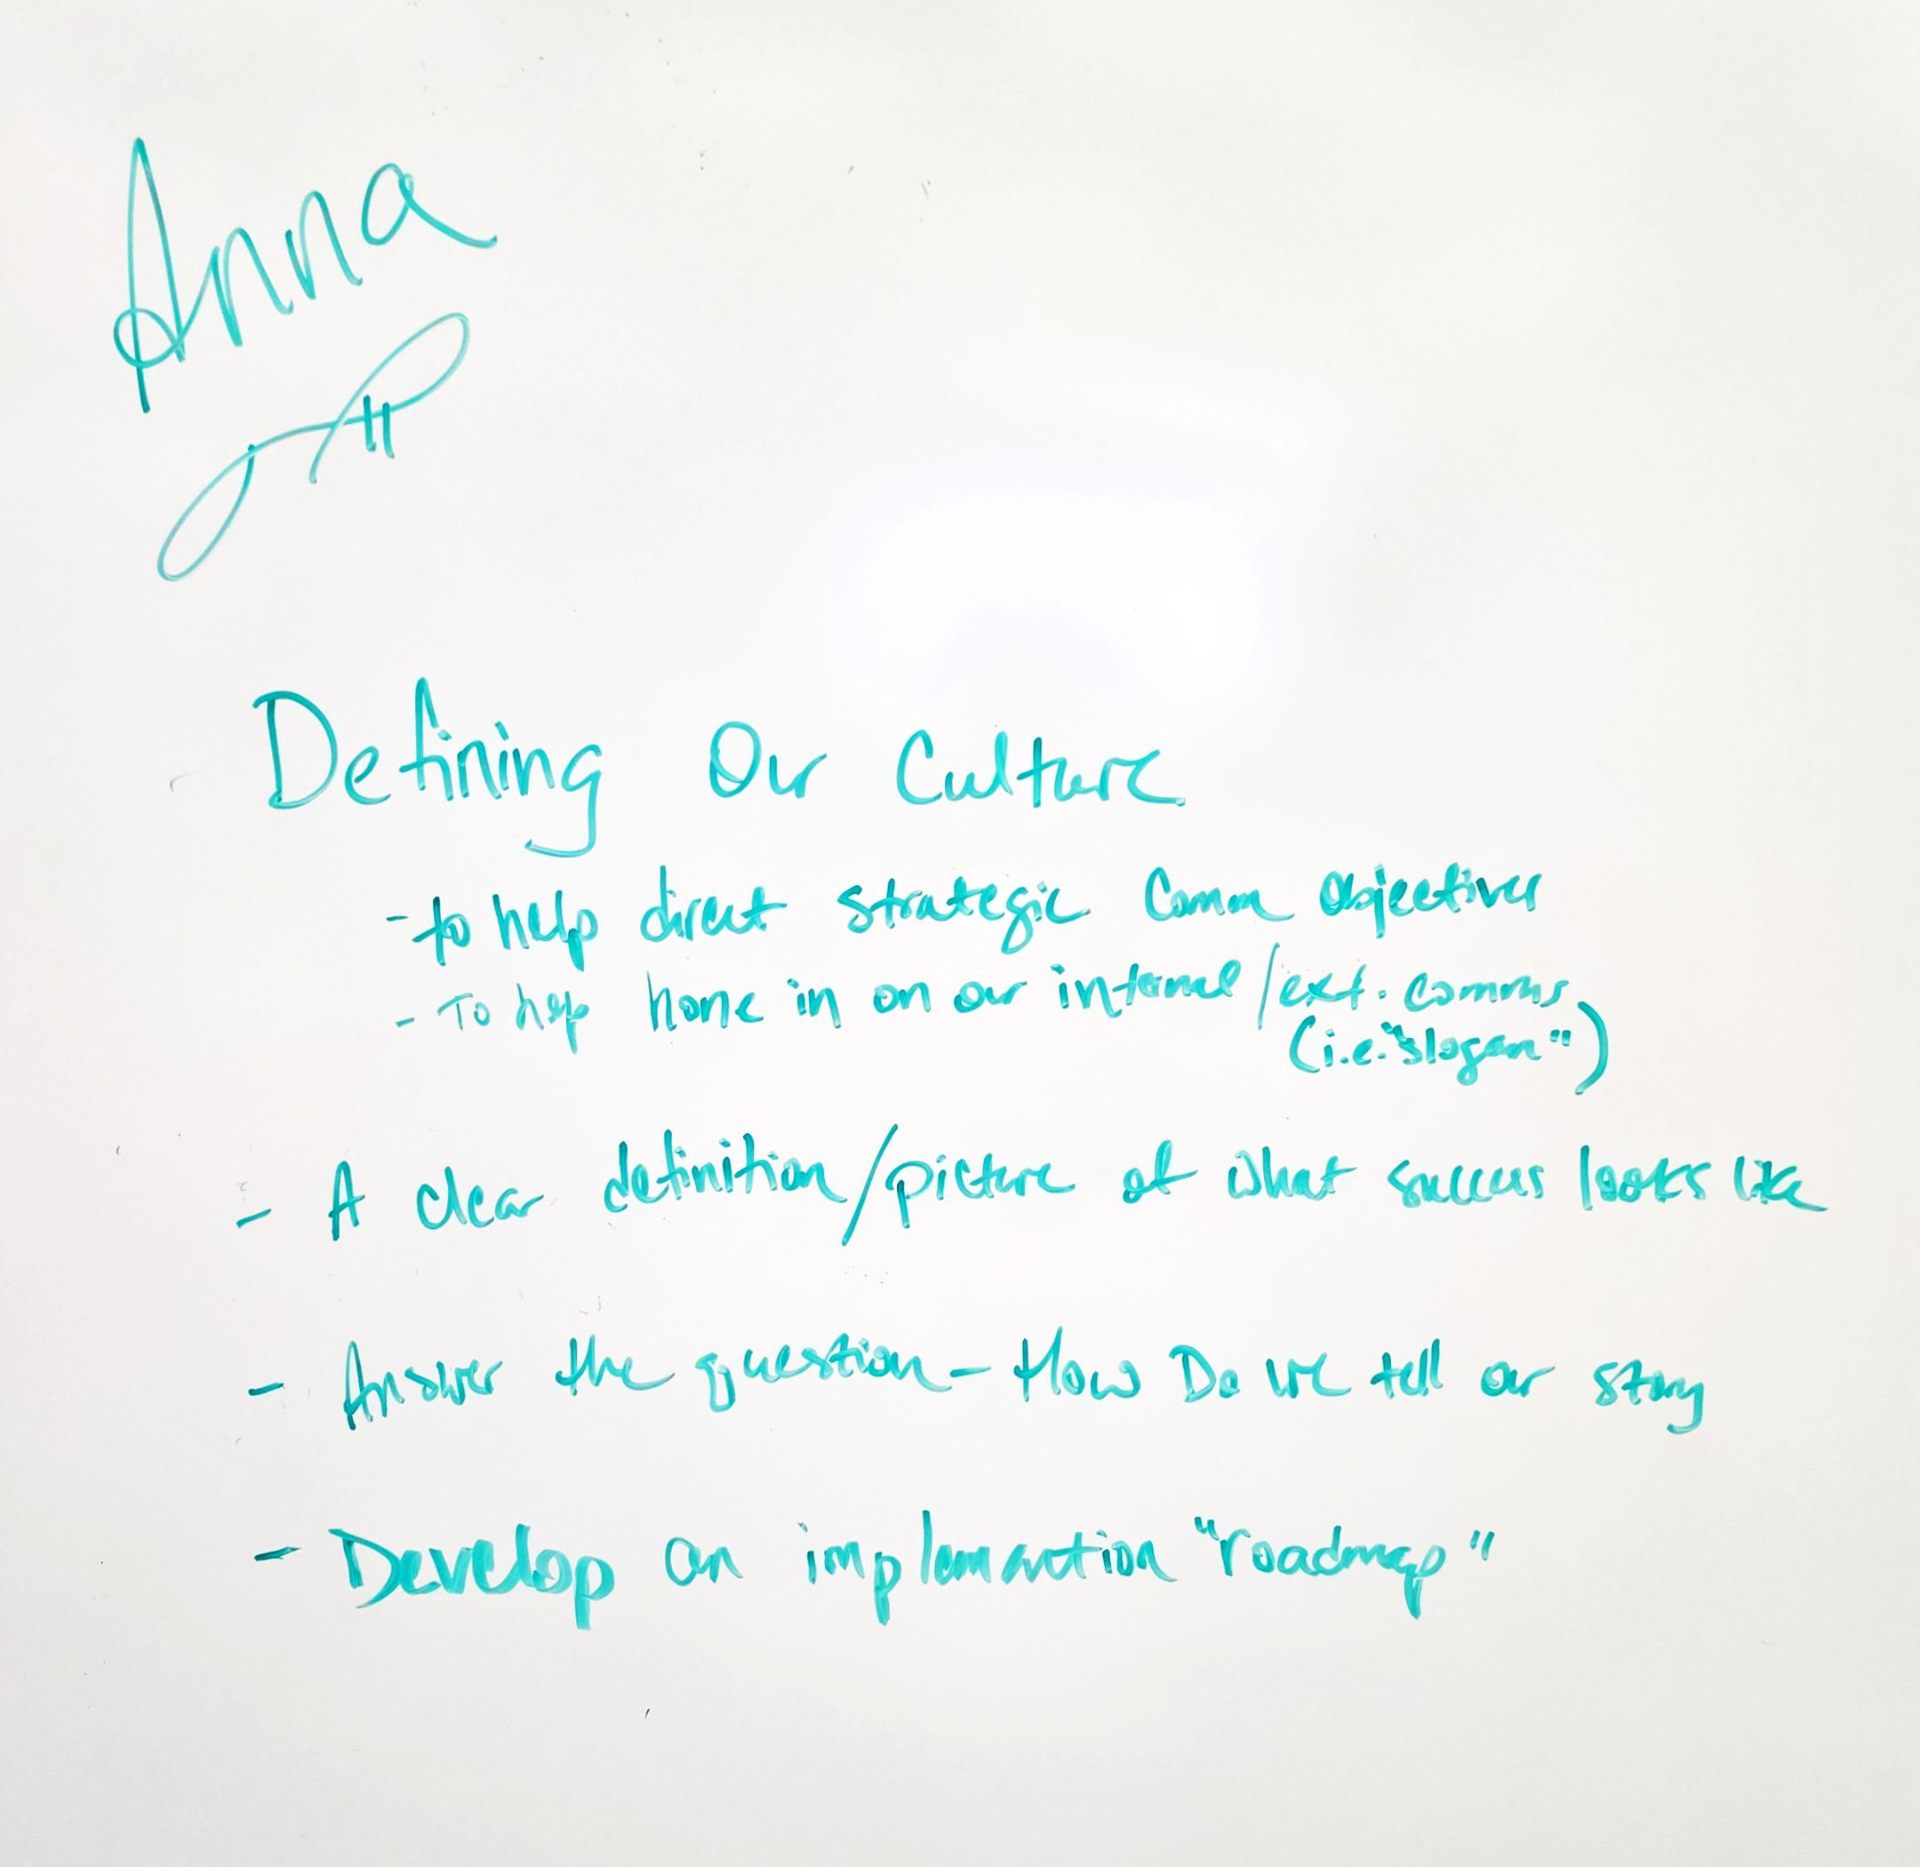 Anna
Defining Our Culture
- to help direct strategic Comm Objectives
- To help hone in on our internal/ext. comms
(i.e. "slogan")
- A clear definition/picture of what success looks like
- Answer the question - How Do we tell our story
- Develop an implemantion "roadmap"